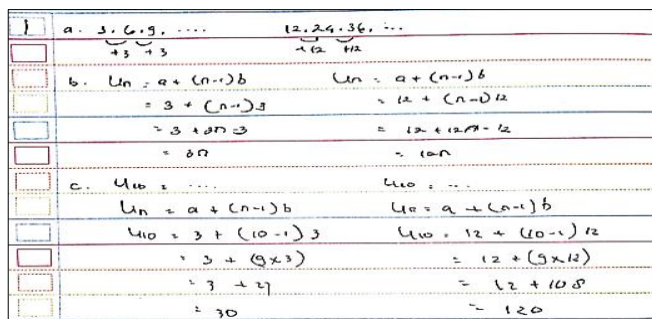 1 a. 3, 6, 9, .... 12, 24, 36, ...
+3 +3 +12 +12
b. Un = a + (n-1)b Un = a + (n-1)b
= 3 + (n-1)3 = 12 + (n-1)12
= 3 + 3n-3 = 12 + 12n - 12
= 3n = 12n
c. U10 = .... U10 = ...
Un = a + (n-1)b Un = a + (n-1)b
U10 = 3 + (10-1)3 U10 = 12 + (10-1)12
= 3 + (9x3) = 12 + (9x12)
= 3 + 27 = 12 + 108
= 30 = 120